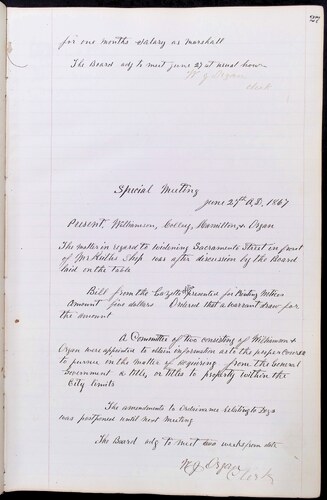 27
for one months salary as marshall
The Board adj to meet June 27 at usual hour
W. J. Organ
Clerk
Special Meeting
June 27th A.D. 1867
Present, Williamson, Hamilton & Organ
The matter in regard to widening Sacramento Street in front
of Mr Shop was after discussion by the Board
laid on the table
Bill from the Gazette presented for Printing Notices
amount five dollars Ordered that a warrant draw for
the amount
A Committee of two consisting of Williamson &
Organ were appointed to obtain information as to the proper course
to pursue on the matter of acquiring from the General
Government a title, or titles to property within the
City limits
The amendments to Ordinances relating to Dogs
was postponed until next meeting
The Board adj to meet two weeks from date
W. J. Organ
Clerk